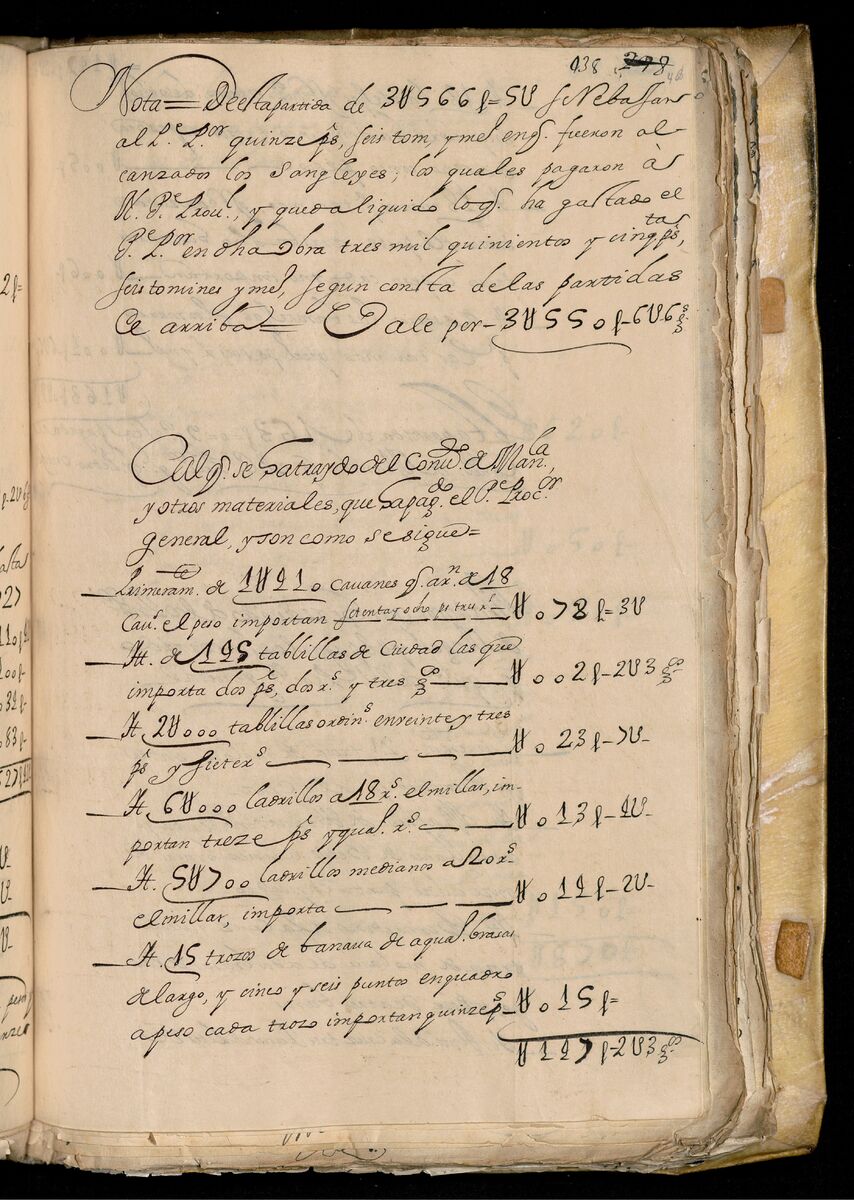 138 278
Nota= Desta partida de 3U566p-5U se Rebaxan
al Pe. Por. quinze ps, seis tom, y mo. en q. fueron al
canzados los Sangleyes; los quales pagaron às
N. Pe. Procul., y queda liquido lo q. ha gastado el
Pe. Por. en dha obra tres mil quinientos y cinqtas ps,
seis tomines y mo, segun consta de las partidas
de arriba= Vale per- 3U550p-6U6gs.
Cal q. se ha traydo del Convdo. de Manla,
y otros materiales, que ha pagdo. el Pe. Procor
general, y son como se sigue=
Primeramte de 1U410 cavanes q. a rn. de 18
Cavs. el peso importan setenta y ocho ps tres rs- U078p-3U
It. de 145 tablillas de Ciudad las que
importa dos ps, dos rs. y tres gos U002p-2U3gos
It. 2U000 tablillas ordins. en veinte y tres
ps y siete rs U023p-7U-
It. 6U000 ladrillos a 18 rs. el millar, im-
portan treze ps y quat. rs. U013p-4U-
It. 5U700 ladrillos medianos a 20 rs.
el millar, importa U014p-2U-
It. 15 trozos de banava de a quat. brasas
de largo, y cinco y seis puntos en quadro
a peso cada trozo importan quinze ps U015p=
U147p-2U3gos.